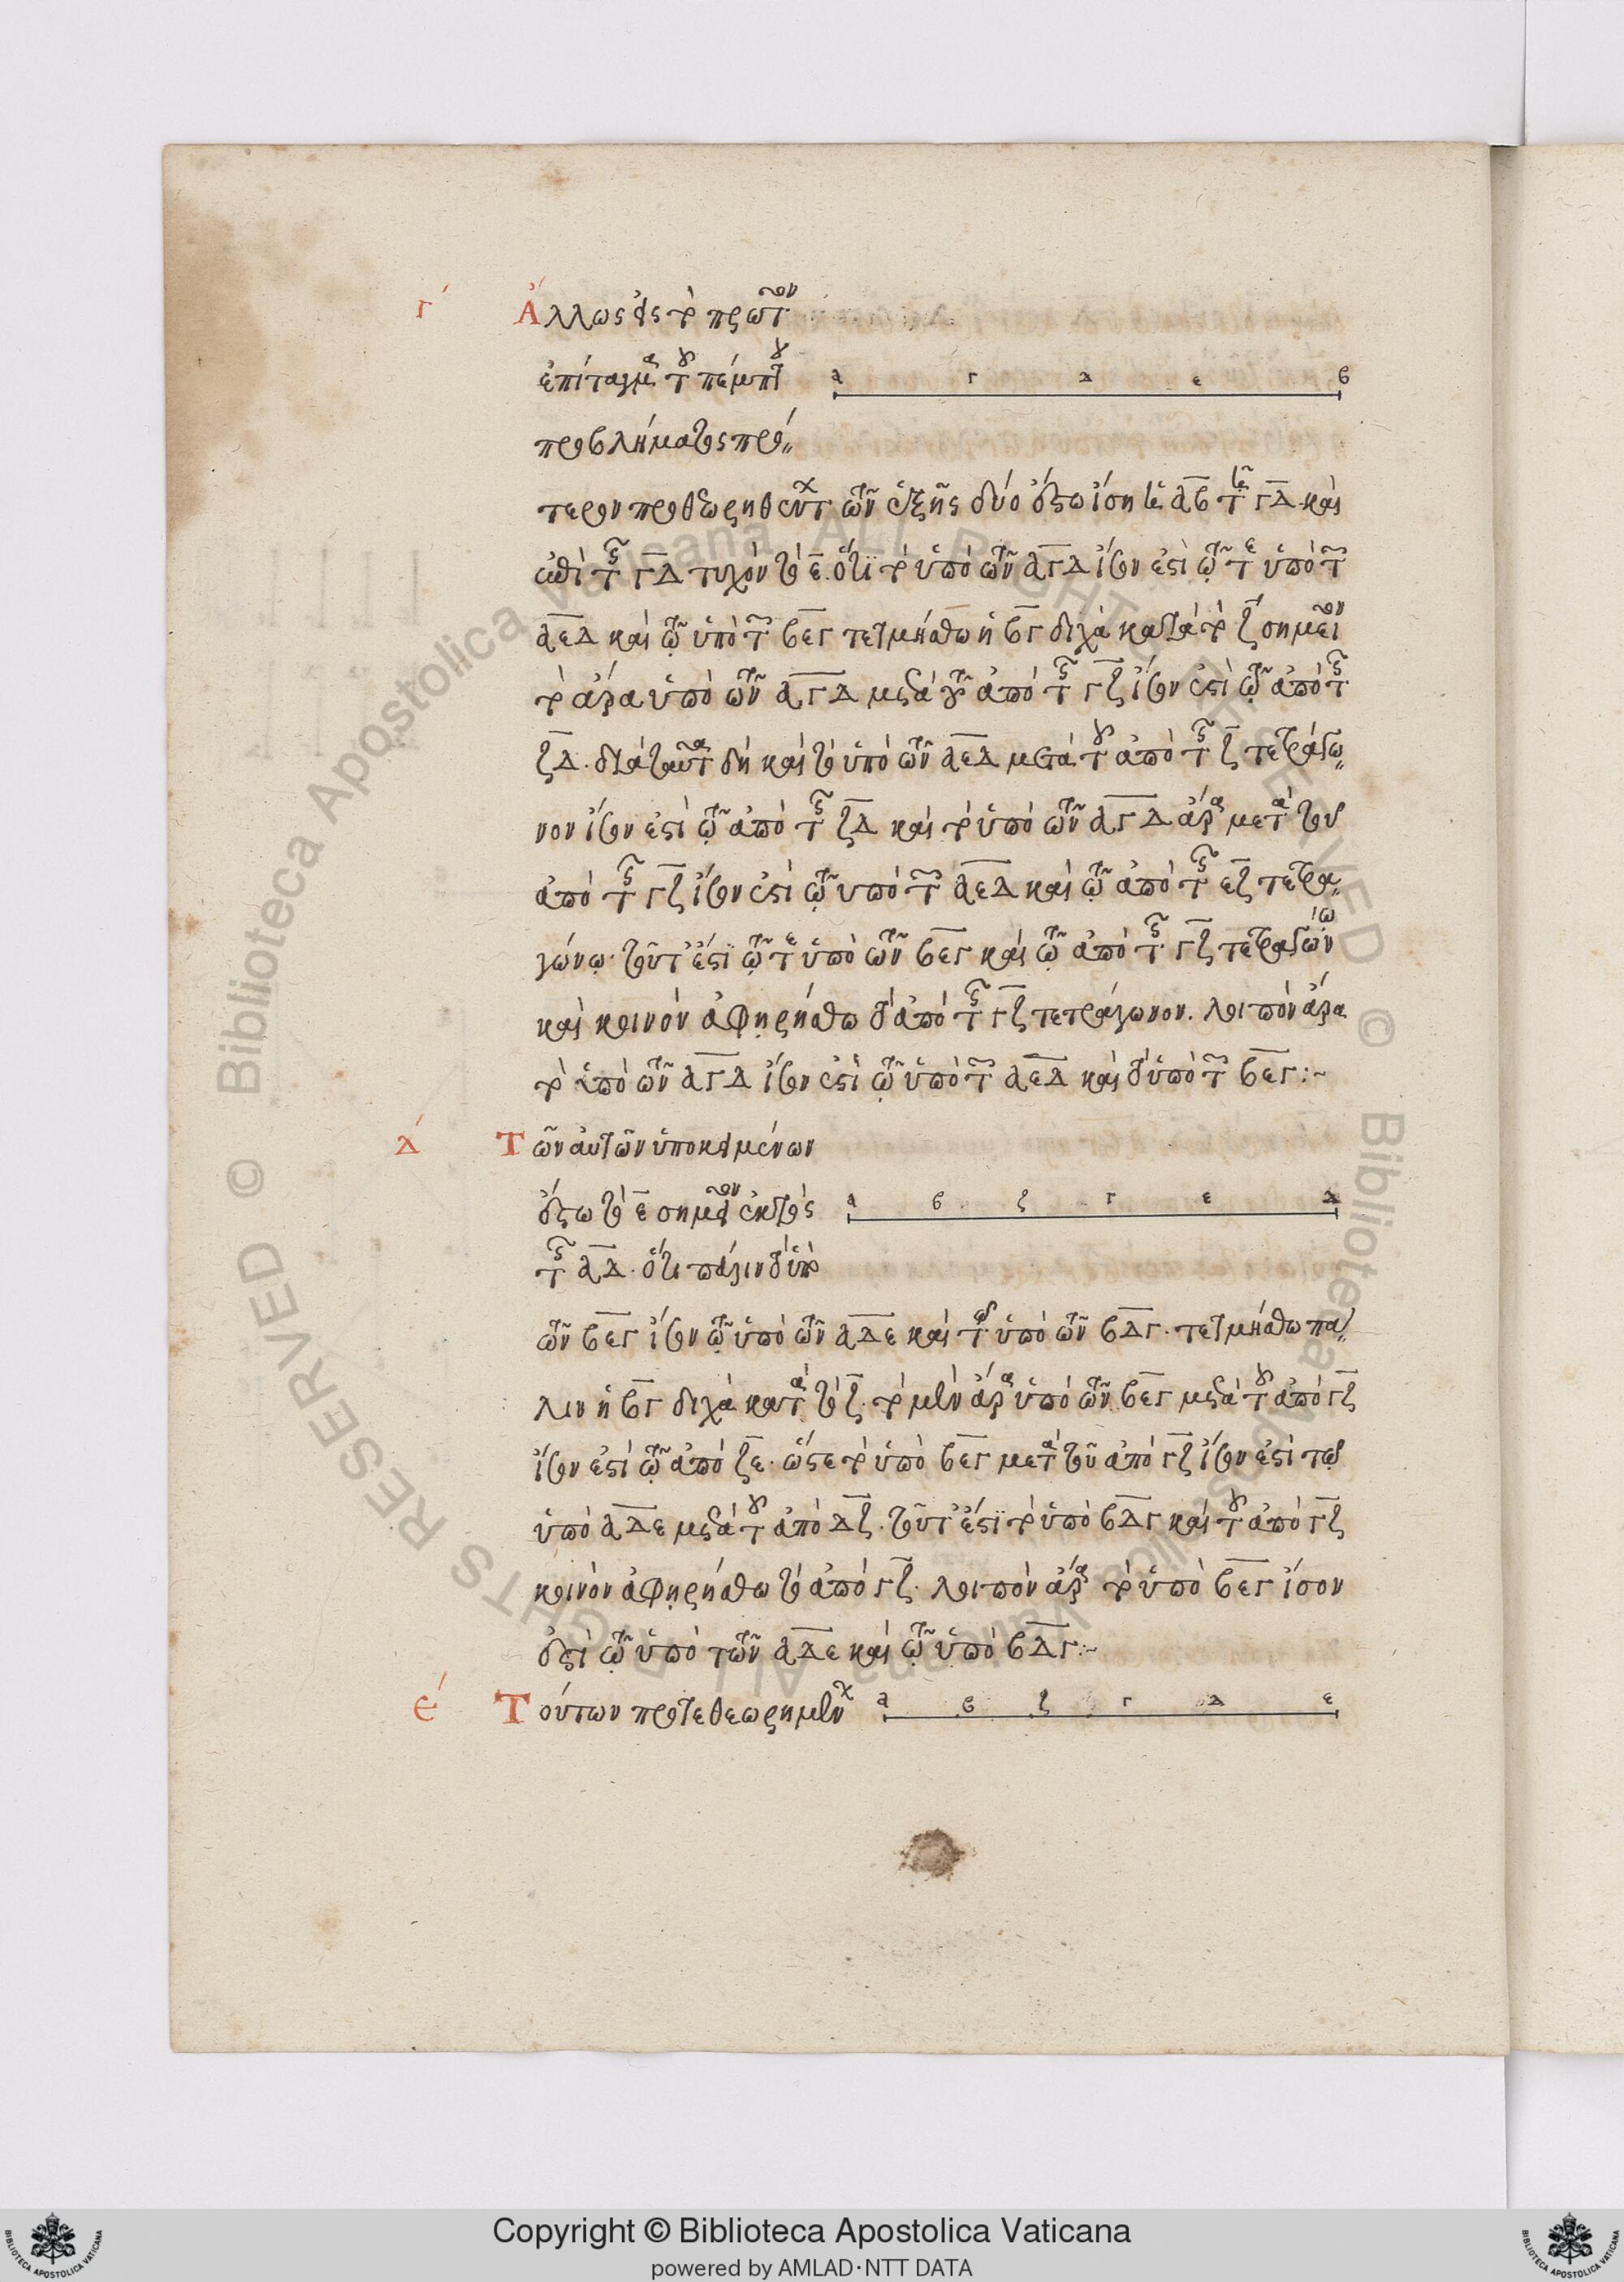 γ´ Ἄλλως εἰς τὸ πρῶτον
ἐπίταγμα τοῦ πέμπτου
α γ δ ε β
προβλήματος πρό
τερον προθεωρηθέντων τῶν ἑξῆς δύο ἔστω ἴση ἡ μὲν αβ τῇ γδ καὶ
ἐπὶ τῆς γδ τυχὸν τὸ ε. ὅτι τὸ ὑπὸ τῶν αγδ ἴσον ἐστὶ τῷ τε ὑπὸ τῶν
αεδ καὶ τῷ ὑπὸ τῶν βεγ τετμήσθω ἡ βγ δίχα κατὰ τὸ ζ σημεῖον
τὸ ἄρα ὑπὸ τῶν αγδ μετὰ τοῦ ἀπὸ τῆς γζ ἴσον ἐστὶ τῷ ἀπὸ τῆς
ζδ. διὰ ταῦτα δὴ καὶ τὸ ὑπὸ τῶν αεδ μετὰ τοῦ ἀπὸ τῆς ζ τετράγω
νον ἴσον ἐστὶ τῷ ἀπὸ τῆς ζδ καὶ τὸ ὑπὸ τῶν αγδ ἄρα μετὰ τοῦ
ἀπὸ τῆς γζ ἴσον ἐστὶ τῷ ὑπὸ τῶν αεδ καὶ τῷ ἀπὸ τῆς εζ τετρα
γώνῳ. τουτέστι τῷ τε ὑπὸ τῶν βεγ καὶ τῷ ἀπὸ τῆς γζ τετραγώνῳ
καὶ κοινὸν ἀφῃρήσθω τὸ ἀπὸ τῆς γζ τετράγωνον. λοιπὸν ἄρα
τὸ ὑπὸ τῶν αγδ ἴσον ἐστὶ τῷ ὑπὸ τῶν αεδ καὶ τὸ ὑπὸ τῶν βεγ :~
δ´ Τῶν αὐτῶν ὑποκειμένων
ἔστω τὸ ε σημεῖον ἐκτὸς
α β ζ γ ε δ
τῆς αδ. ὅτι πάλιν τὸ ὑπὸ
τῶν βεγ ἴσον τῷ ὑπὸ τῶν αδε καὶ τῷ ὑπὸ τῶν βδγ. τετμήσθω πά
λιν ἡ βγ δίχα κατὰ τὸ ζ. τὸ μὲν ἄρα ὑπὸ τῶν βεγ μετὰ τοῦ ἀπὸ γζ
ἴσον ἐστὶ τῷ ἀπὸ ζε. ὥστε τὸ ὑπὸ βεγ μετὰ τοῦ ἀπὸ γζ ἴσον ἐστὶ τῷ
ὑπὸ αδε μετὰ τοῦ ἀπὸ δζ. τουτέστι τὸ ὑπὸ βδγ καὶ τοῦ ἀπὸ γζ
κοινὸν ἀφῃρήσθω τὸ ἀπὸ γζ. λοιπὸν ἄρα τὸ ὑπὸ βεγ ἴσον
ἐστὶ τῷ ὑπὸ τῶν αδε καὶ τῷ ὑπὸ βδγ :~
ε´ Τούτων προτεθεωρημένων
α β ζ γ δ ε
© Biblioteca Apostolica Vaticana ALL RIGHTS RESERVED © Biblioteca Apostolica Vaticana ALL RIGHTS RESERVED
Copyright © Biblioteca Apostolica Vaticana
powered by AMLAD·NTT DATA
BIBLIOTECA APOSTOLICA VATICANA
BIBLIOTECA APOSTOLICA VATICANA